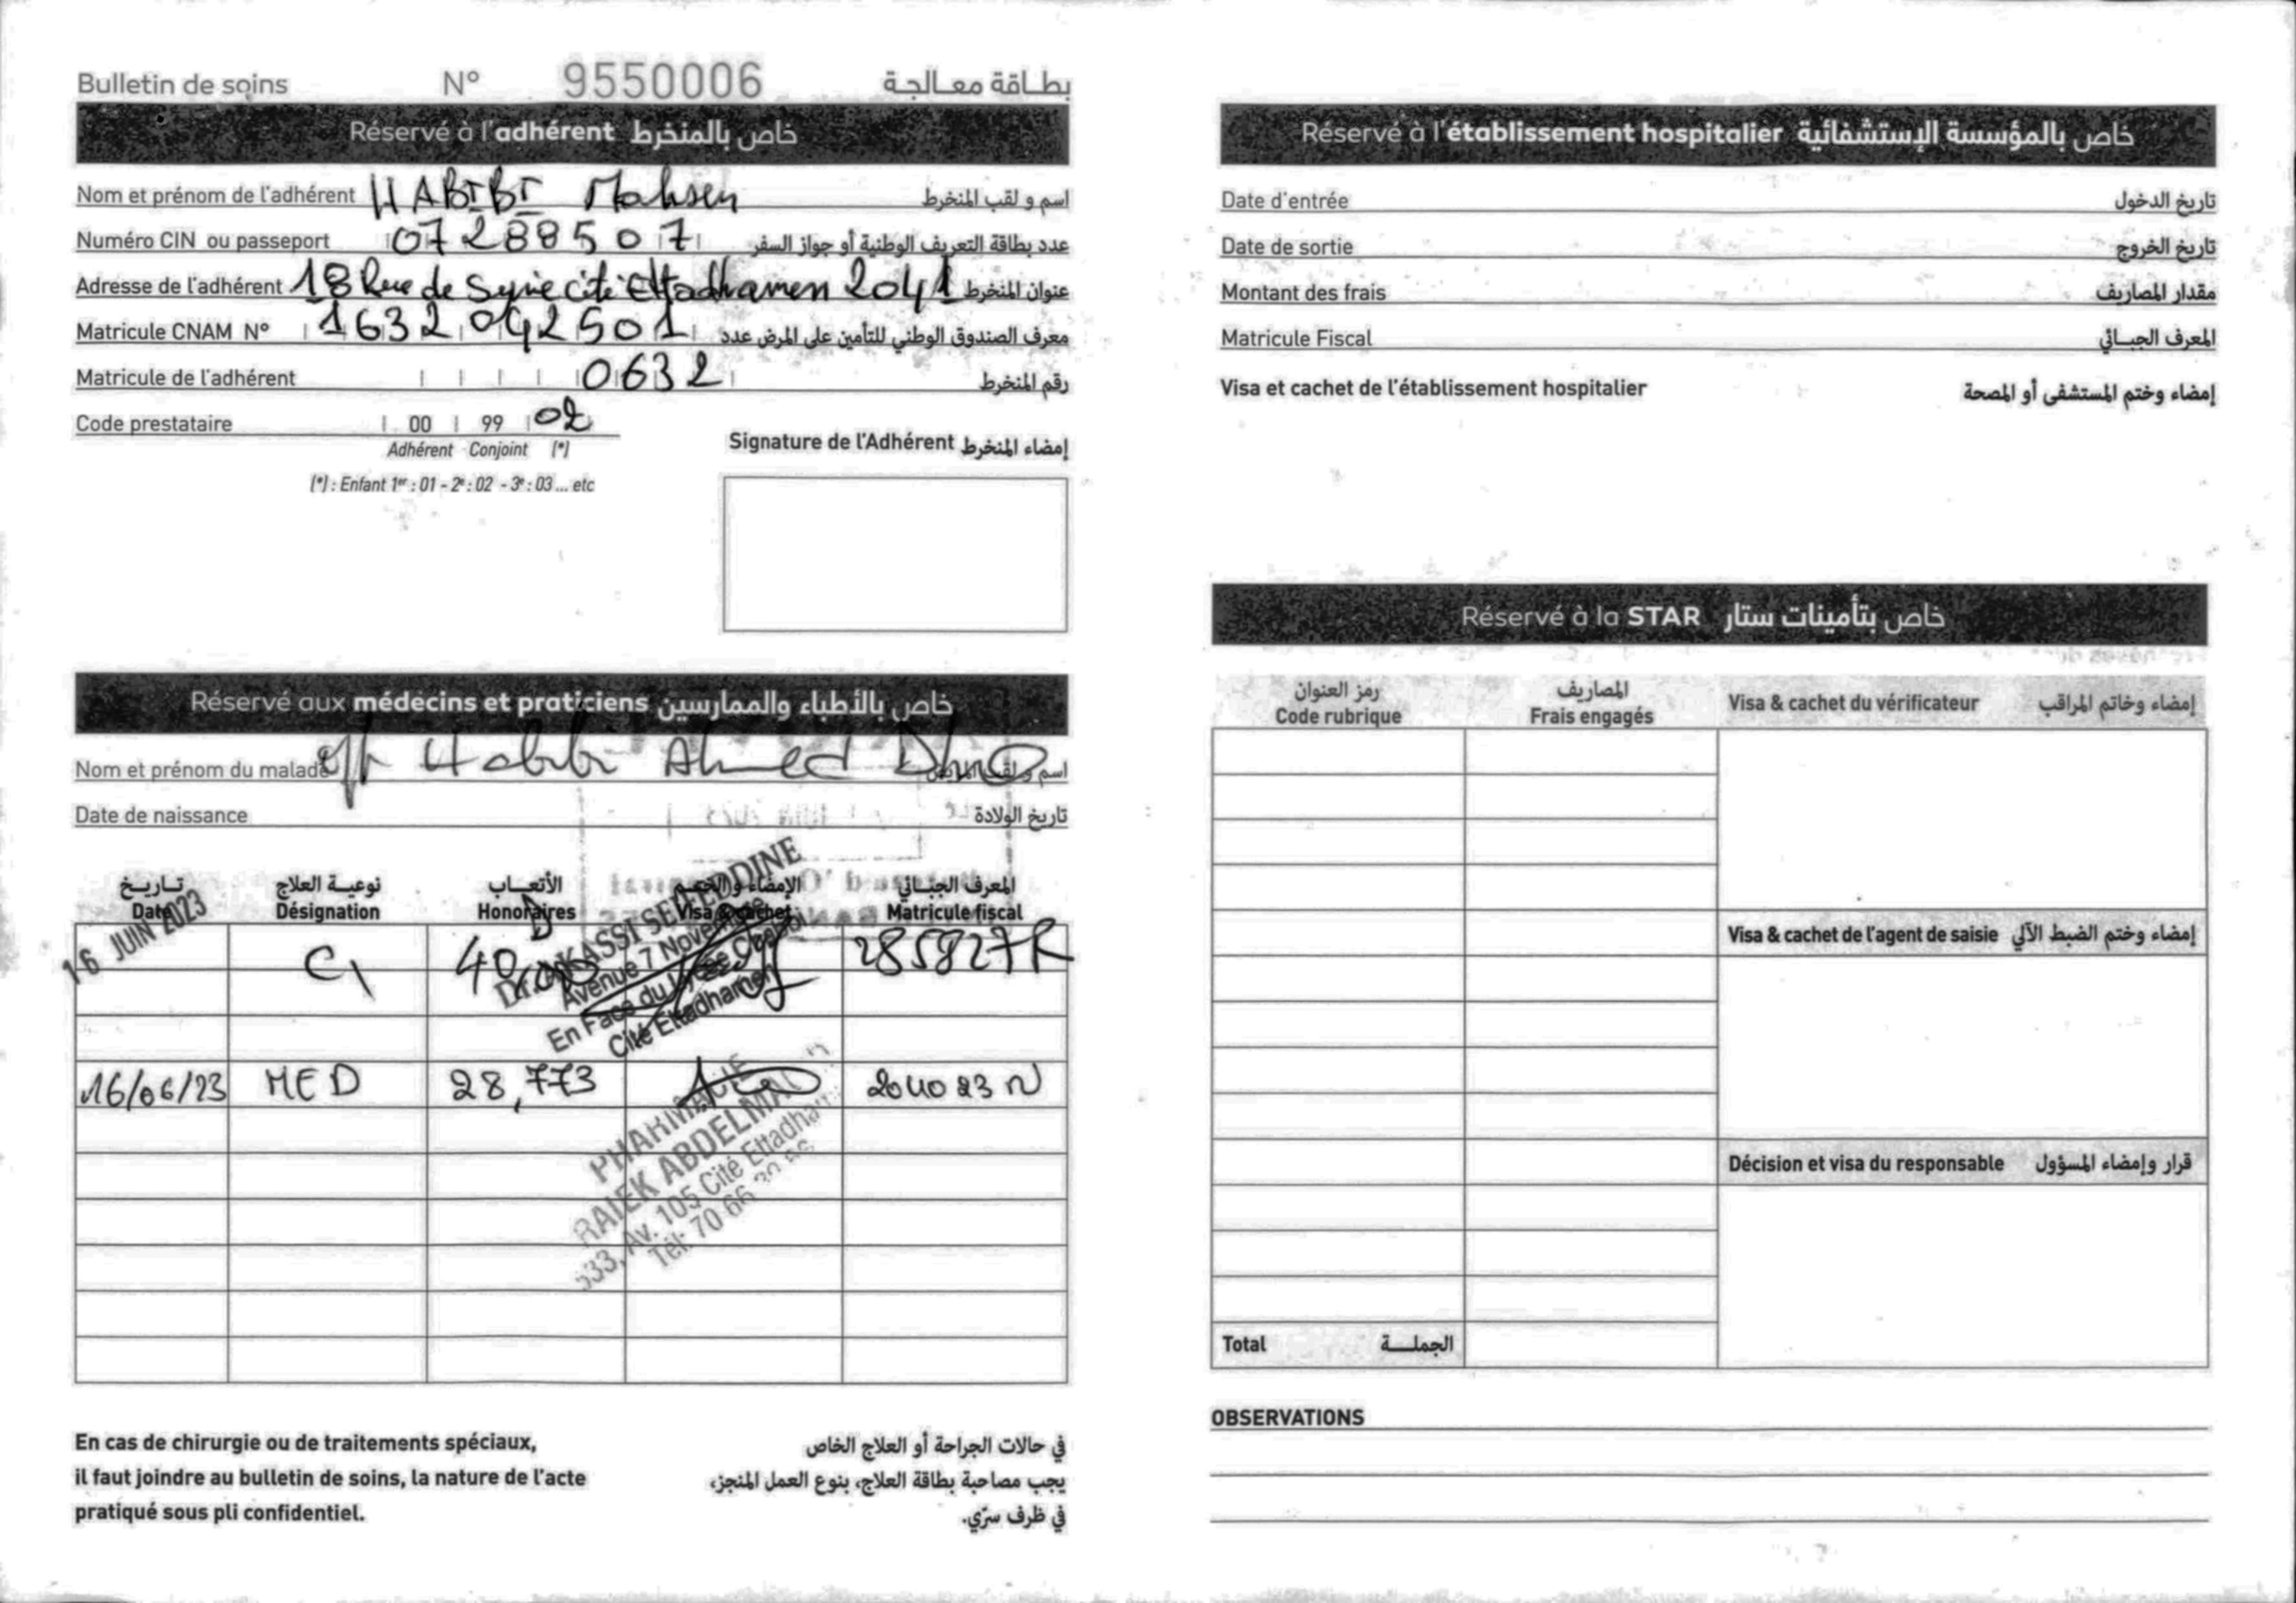 Bulletin de soins N° 9550006 بطاقة معالجة
Réservé à l'adhérent خاص بالمنخرط
Nom et prénom de l'adhérent HABIBI Mohsen اسم و لقب المنخرط
Numéro CIN ou passeport 07288507 عدد بطاقة التعريف الوطنية أو جواز السفر
Adresse de l'adhérent 18 Rue de Syrie cité Ettadhamen 2041 عنوان المنخرط
Matricule CNAM N° 1632042501 معرف الصندوق الوطني للتأمين على المرض عدد
Matricule de l'adhérent 0632 رقم المنخرط
Code prestataire 00 99 02
Adhérent Conjoint (*)
(*) : Enfant 1er : 01 - 2e : 02 - 3e : 03 ... etc
Signature de l'Adhérent إمضاء المنخرط
Réservé aux médecins et praticiens خاص بالأطباء والممارسين
Nom et prénom du malade Habibi Ahmed اسم و لقب المريض
Date de naissance تاريخ الولادة
تاريخ نوعية العلاج الأتعاب الإمضاء و الختم المعرف الجبائي
Date Désignation Honoraires Visa & cachet Matricule fiscal
16 JUIN 2023 C1 40,00 285827R
Dr. AKASSI SEIFEDDINE
Avenue 7 Novembre
En Face du Lycée
Cité Ettadhamen
16/06/23 MED 28,773 204023N
PHARMACIE
RAIEK ABDELMA
533, Av. 105 Cité Ettadha
Tél: 70 66
En cas de chirurgie ou de traitements spéciaux,
il faut joindre au bulletin de soins, la nature de l'acte
pratiqué sous pli confidentiel.
في حالات الجراحة أو العلاج الخاص
يجب مصاحبة بطاقة العلاج، بنوع العمل المنجز،
في ظرف سرّي.
Réservé à l'établissement hospitalier خاص بالمؤسسة الإستشفائية
Date d'entrée تاريخ الدخول
Date de sortie تاريخ الخروج
Montant des frais مقدار المصاريف
Matricule Fiscal المعرف الجبائي
Visa et cachet de l'établissement hospitalier إمضاء وختم المستشفى أو المصحة
Réservé à la STAR خاص بتأمينات ستار
رمز العنوان المصاريف
Code rubrique Frais engagés Visa & cachet du vérificateur إمضاء وخاتم المراقب
Visa & cachet de l'agent de saisie إمضاء وختم الضبط الآلي
Décision et visa du responsable قرار وإمضاء المسؤول
Total الجملة
OBSERVATIONS